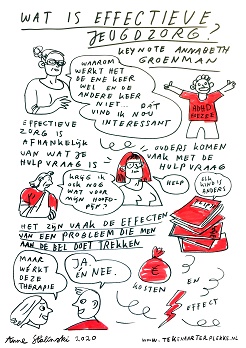 WAT IS EFFECTIEVE
JEUGDZORG?
KEYNOTE ANNABETH
GROENMAN
WAAROM
WERKT HET
DE ENE KEER
WEL EN DE
ANDERE KEER
NIET.. DÁT
VIND IK NOU
INTERESSANT
EFFECTIEVE
ZORG IS
AFHANKELIJK
VAN WAT JE
HULPVRAAG IS
OUDERS KOMEN
VAAK MET DE
HULPVRAAG
KRIJG IK
OOK NOG
WAT VOOR
MIJN HOOFD-
PIJN?
HELP
ELK
KIND IS
ANDERS
HET ZIJN VAAK DE EFFECTEN
VAN EEN PROBLEEM DIE MEN
AAN DE BEL DOET TREKKEN
MAAR
WERKT
DEZE
THERAPIE
JA,
EN NEE.
€
KOSTEN
EN
EFFECT
Anne Stalinski 2020
WWW.TEKENAARTERPLEKKE.NL